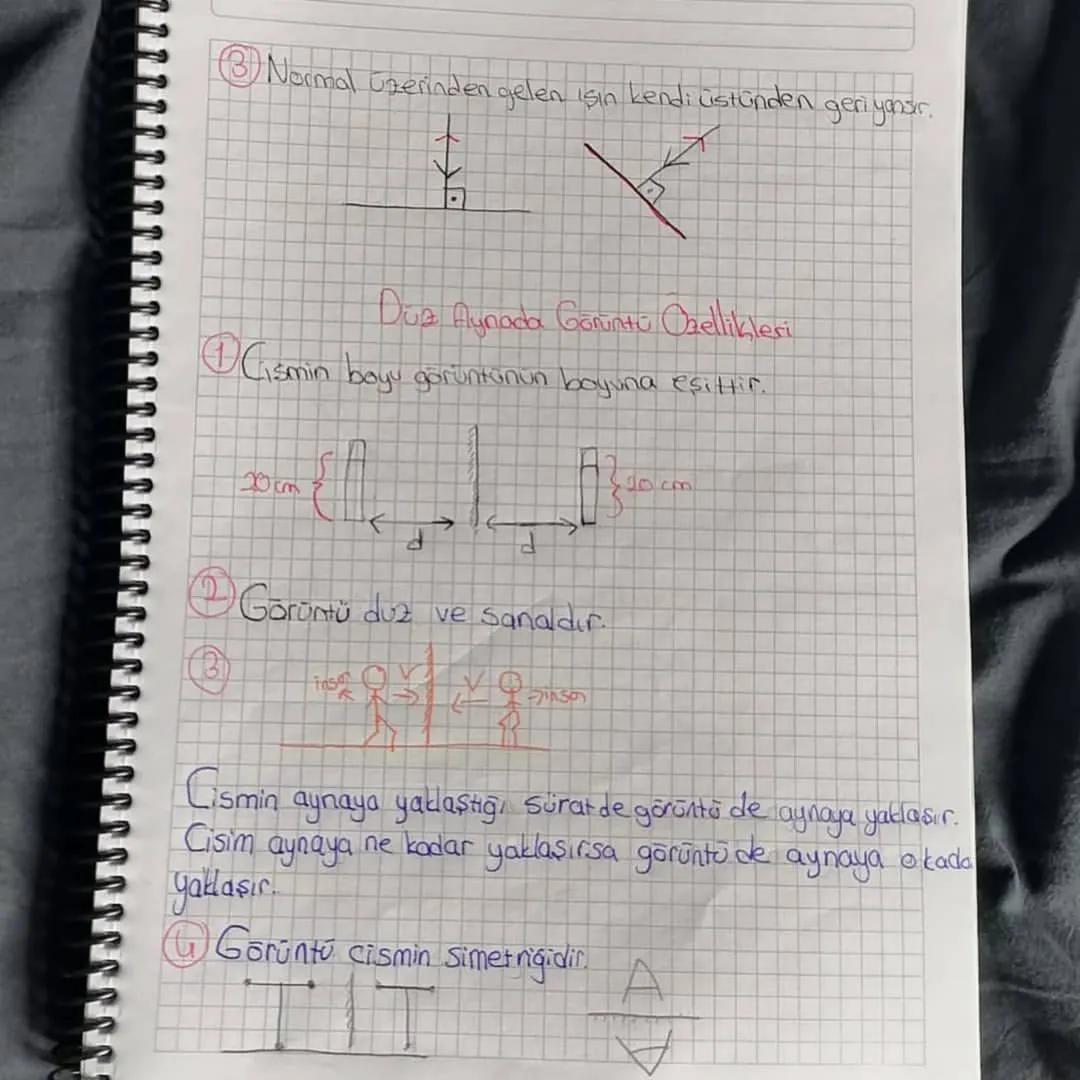 3 Normal üzerinden gelen ışın kendi üstünden geri yansır.
Düz Aynada Görüntü Özellikleri
1 Cismin boyu görüntünün boyuna eşittir.
20 cm
20 cm
d
d
2 Görüntü düz ve sanaldır.
3
insan V V insan
Cismin aynaya yaklaştığı süratde görüntü de aynaya yaklaşır.
Cisim aynaya ne kadar yaklaşırsa görüntü de aynaya o kada
yaklaşır.
4 Görüntü cismin simetriğidir.
T T
A
A